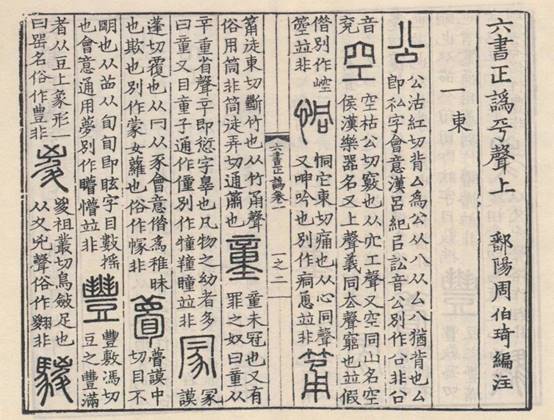 六書正譌平聲上 鄱陽周伯琦編注
一東
公 公沽紅切背厶為公从八从厶八猶背也厶
即私字會意漢呂紀㠯訟音公別作㕣非㕣
音
兗
空 空枯公切竅也从穴工聲又空同山名空
侯漢樂器名又上聲義同去聲窮也並假
借別作崆
箜並非
恫 恫它東切痛也从心同聲
又呻吟也別作痌並非
筩
六書正譌卷一 一之二
筩徒東切斷竹也从竹甬聲
俗用筒非筒徒弄切通簫也
童 童未冠也又有
罪之奴曰童从
䇂重省聲䇂即愆字辠也凡物之幼者多
曰童又目童子通作僮別作憧瞳並非
冡 冡
謨
蓬切覆也从冃从豕會意借為稚昧
也欺也別作蒙女蘿也俗作懞非
瞢 瞢謨中
切目不
朙也从苜从旬旬即眩字目數搖
也會意通用夢別作矒懵並非
豐 豐敷馮切
豆之豐滿
者从豆上象形一
曰器名俗作豊非
㚇 㚇祖叢切鳥斂足也
从夊兇聲俗作翪非
騣